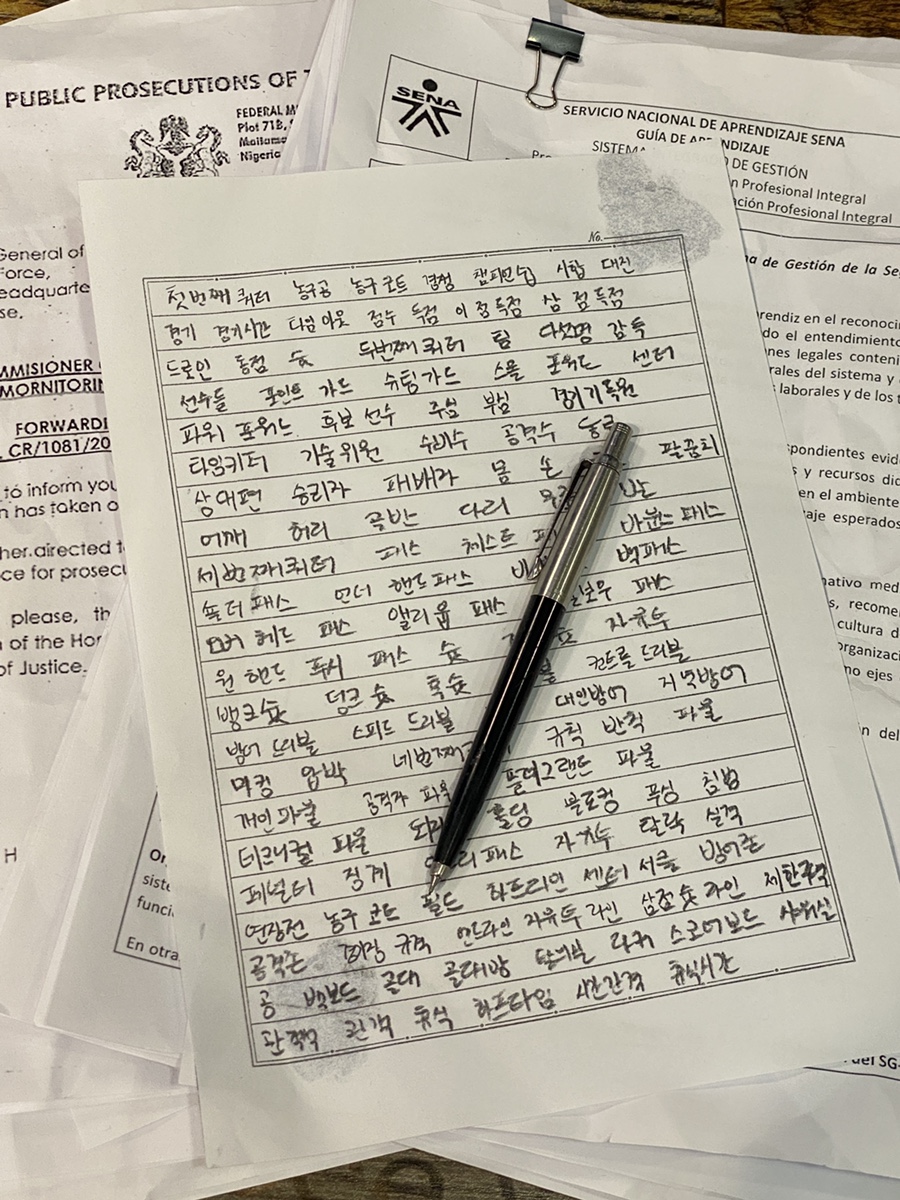 PUBLIC PROSECUTIONS OF
FEDERAL
Plot 71B,
Maitama
Nigeria
General of
Force,
eadquarte
se.
MMISIONER
MORNITORIN
FORWARDI
CR/1081/20
to inform you
n has taken o
her directed t
ce for prosecu
please, th
n of the Hor
of Justice.
H
SENA
SERVICIO NACIONAL DE APRENDIZAJE SENA
GUÍA DE NDIZAJE
SISTEMA DE GESTIÓN
n Profesional Integral
ación Profesional Integral
ma de Gestión de la Se
rendiz en el reconoci
do el entendimiento
nes legales conteni
rales del sistema y
laborales y de los t
spondientes evid
s y recursos did
en el ambiente
aje esperados
nativo med
s, recome
cultura d
organizació
mo ejes
n del
del SG-
Or
siste
funci
En otra
No.
첫번째 쿼터 농구공 농구 코트 경쟁 챔피언쉽 시합 대진
경기 경기시간 타임 아웃 점수 득점 이 점 득점 삼 점 득점
드로인 동점 슛 두번째 쿼터 팀 다섯명 감독
선수들 포인트 가드 슈팅가드 스몰 포워드 센터
파워 포워드 후보 선수 주심 부심 경기기록원
타임키퍼 기술위원 수비수 공격수 동료
상대편 승리자 패배자 몸 손 팔꿈치
어깨 허리 골반 다리 무릎 발
세번째쿼터 패스 체스트 바운스패스
숄더패스 언더 핸드패스 백패스
오버 헤드 패스 앨리웁 패스 패스
원 핸드 푸시 패스 슛 자유투
뱅크슛 덩크슛 훅슛 컨트롤 드리블
방어 드리블 스피드 드리블 대인방어 지역방어
마킹 압박 네번째 규칙 반칙 파울
개인파울 공격자 파울 플러그랜트 파울
테크니컬 파울 홀딩 블로킹 푸싱 침범
페널티 징계 패스 자유투 탈락 실격
연장전 농구 코트 필드 하프라인 센터 서클 방어존
공격존 퇴장 규격 엔드라인 자유투 라인 삼점슛 라인 제한구역
공 백보드 골대 골대망 탈의실 라커 스코어보드 샤워실
관중석 관객 휴식 하프타임 시간간격 휴식시간